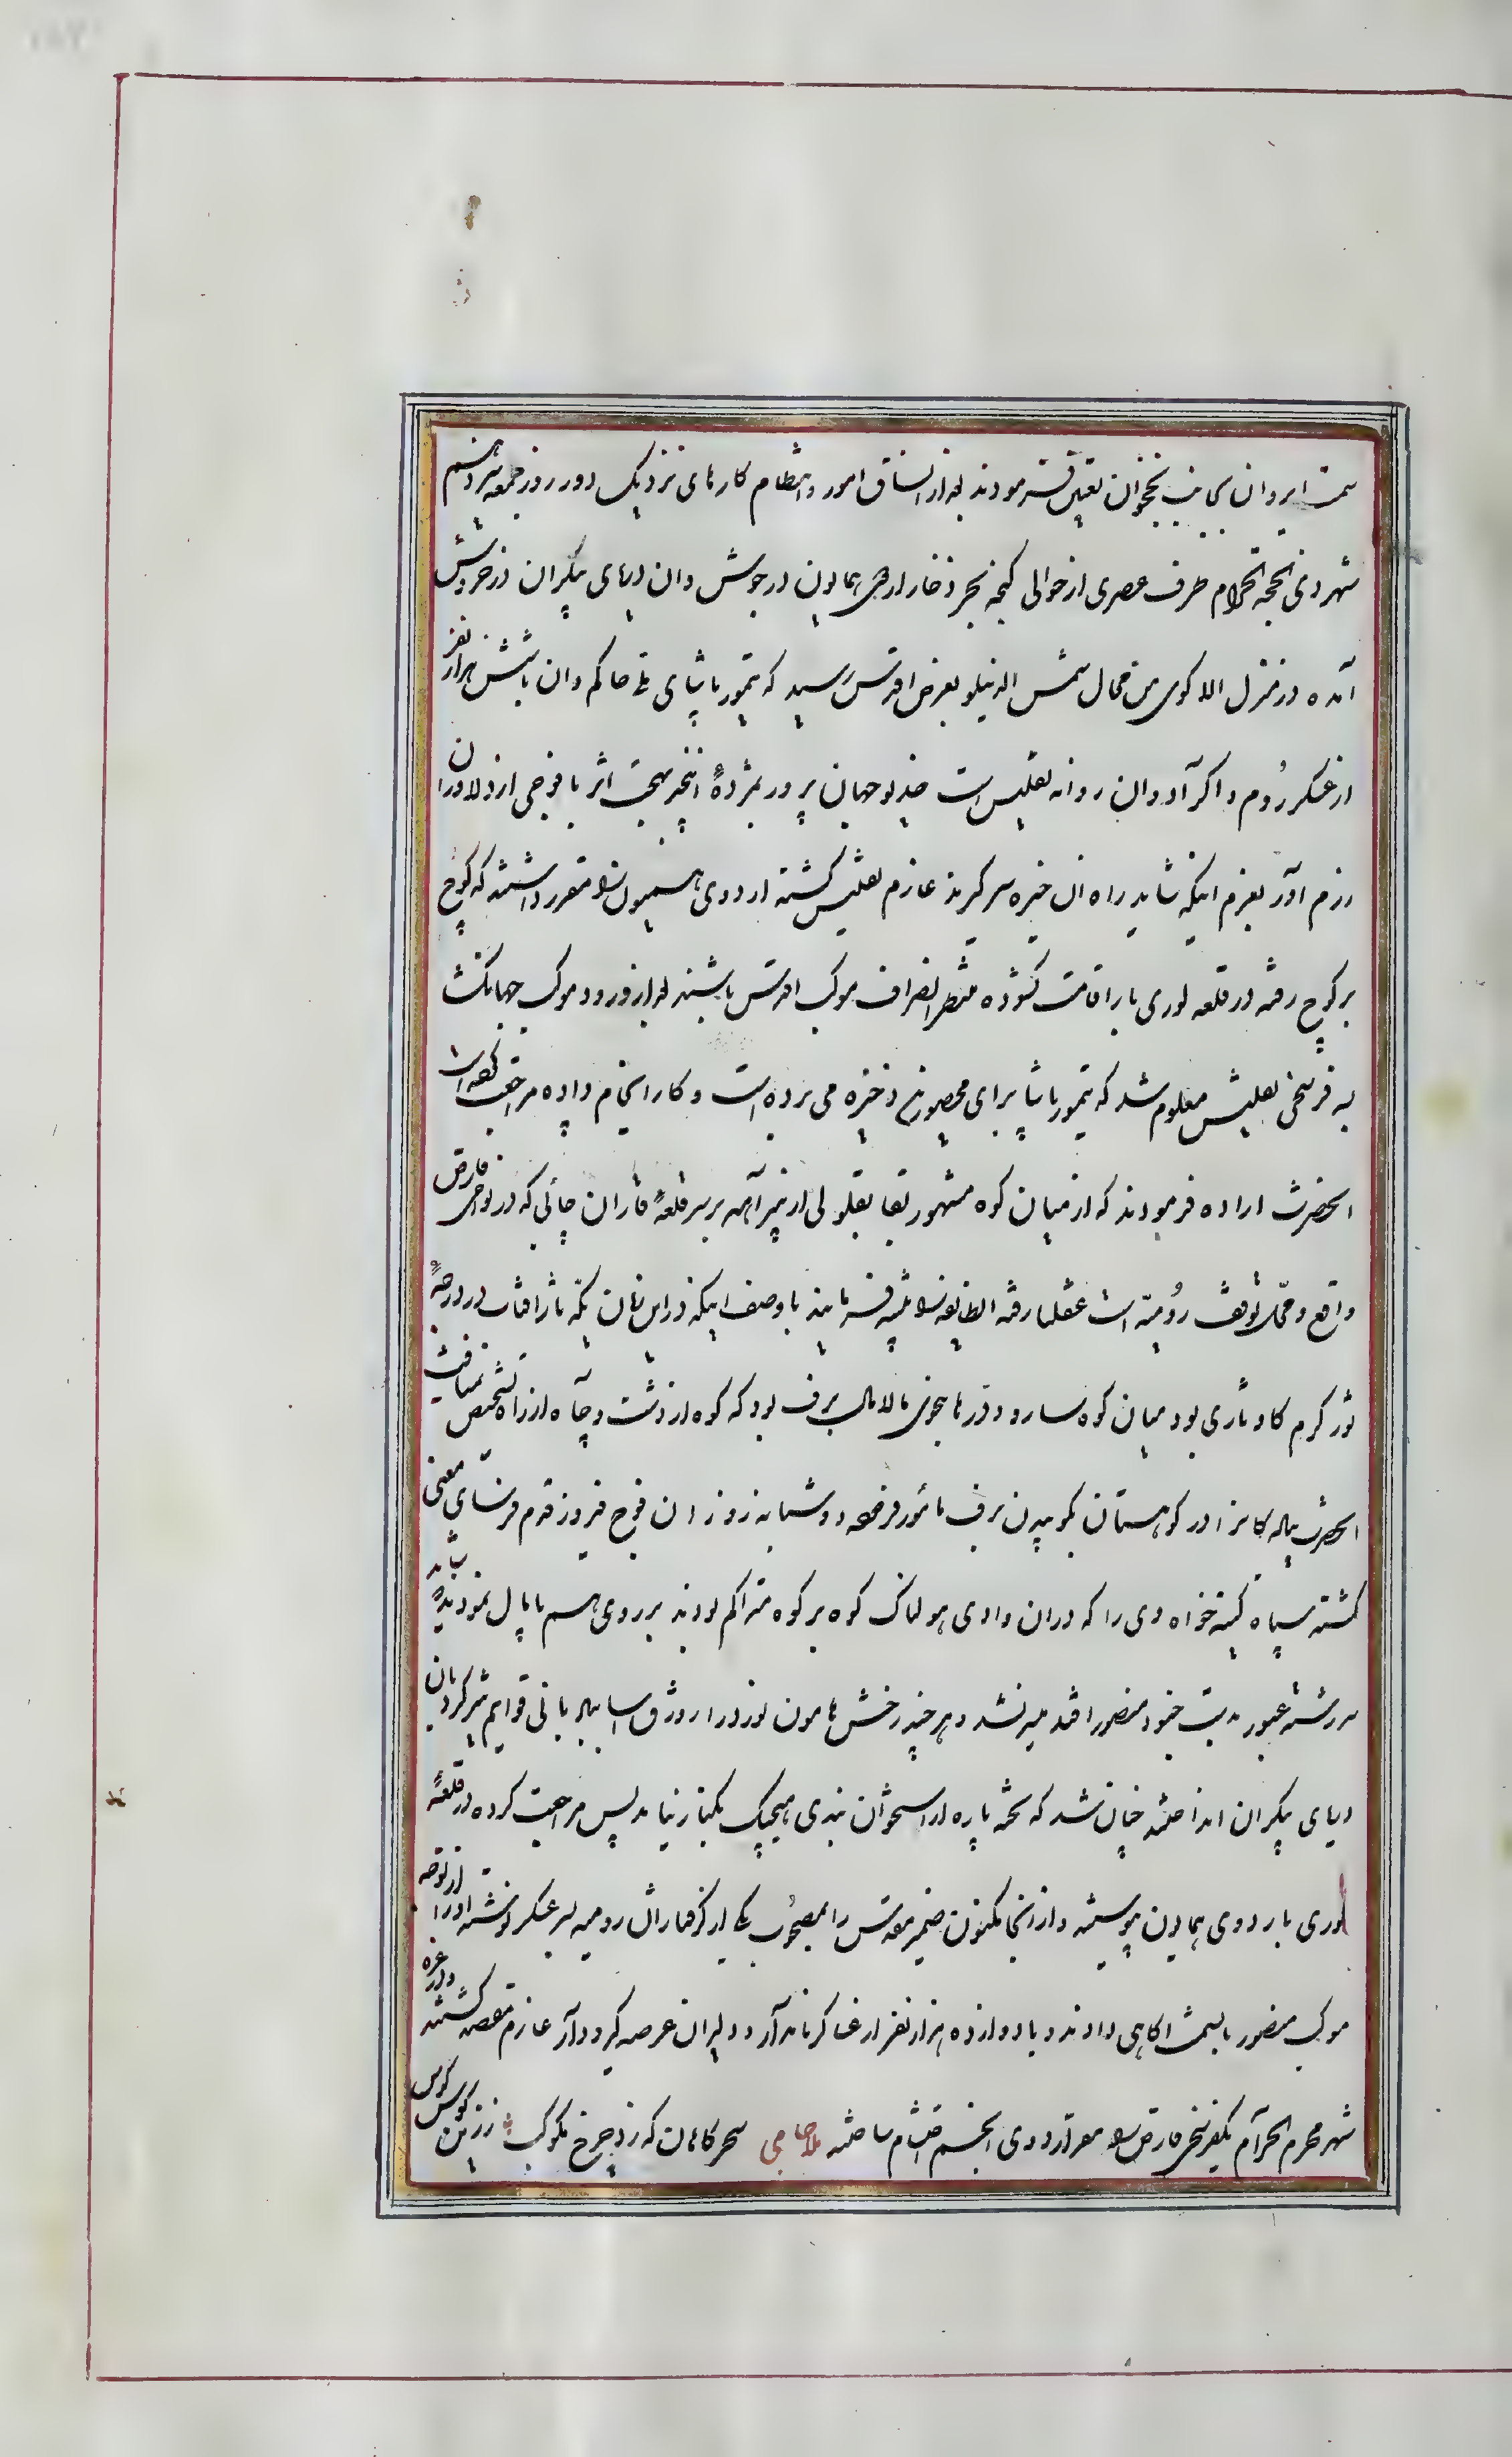 سمت ایروان بجانب نخجوان تعیین فرمودند بعد از اتساق امور و انتظام کارهای نزدیک و دور روز جمعه سیزدهم
شهر ذی الحجه الحرام طرف عصری از حوالی گنجه بحر ذخار اردوی همایون در جوش و ان دریای بیکران در خروش
آمده در منزل الاکوی من محال شمس الدینلو بعرض اقدس رسید که تیمور پاشای ملی حاکم وان با شش هزار نفر
از عسکر روم و اکراد وان روانه تفلیس است خدیو جهان پرور بمژدهٔ اینخبر بهجت اثر با فوجی از دلاوران
رزم آور بعزم اینکه شاید راه ان خیره سر گیرند عازم تفلیس گشته اردوی همایون را مقرر داشتند که کوچ
بر کوچ رفته در قلعه لوری بار اقامت گشوده منتظر انصراف موکب اقدس باشند بعد از ورود موکب جهانگشا
به فرسخی تفلیس معلوم شد که تیمور پاشا برای محصورین ذخیره می برده است و کار انجام داده مراجعت کرده است
انحضرت اراده فرمودند که از میان کوه مشهور بقایقلو لی از تیر آمده بر سر قلعهٔ قازان چائی که در نواحی قارص
واقع و محل توقف رومیه است عقلما رفته الطایفه را تنبیه فرمایند با وصف اینکه در این زمان یکه تاز افتاب در درجهٔ
ثور گرم کاوتازی بود میان کوهسار و دره ها بنحوی مالامال برف بود که کوه از دشت و چاه از راه تشخیص نمییافت
انحضرت پیادگانرا در کوهستان بکوبیدن برف مأمور فرموده دو شبانه روز ان فوج فیروز قدم فرسای معنی
گشته سپاه کینه خواه وی را که دران وادی هولناک کوه بر کوه متراکم بودند بر روی هم پامال نمودند شاید
سررشته عبور بدست جنود منصور افتد میسر نشد و هر چند رخش هامون نورد را زورق آسا بیادبانی قوایم تیزگردبان
دریای بیکران انداختند چنان شد که تخته پاره از استخوان بندی هیچیک بکنار نیامد پس مراجعت کرده در قلعهٔ
لوری باردوی همایون پیوسته و از انجا مکنون ضمیر مقدس را بمصحوب یکی از گرفتاران رومیه بسرعسکر نوشته او را از توجه
موکب منصور بانسمت اگاهی دادند و با دوازده هزار نفر از عساکر نامدار و دلیران عرصه گیرودار عازم مقصد گشتند و در غره
شهر محرم الحرام یکفرسخی قارص را مقر اردوی انجم احتشام ساختند ملا جامی سحرگاهان که زد چرخ مکوکب ز زرین کوس کوس